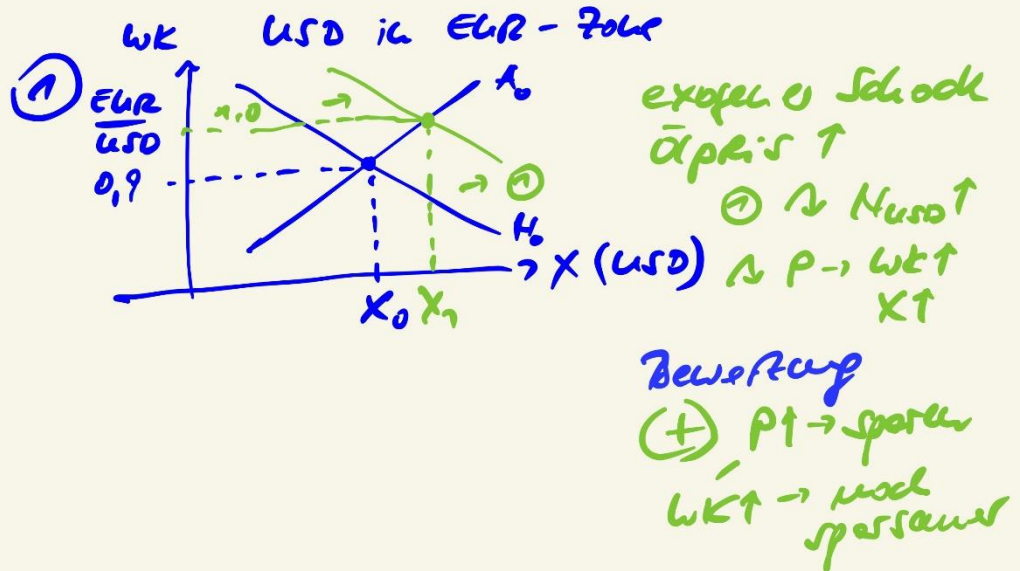 WK USD in EUR-Zone
①
EUR
USD
1,0
0,9
A₀
→
→ ①
N₀
→ X (USD)
X₀ X₁
exogener Schock
Ölpreis ↑
① ↷ N USD ↑
↷ P → WK ↑
X ↑
Bewertung
(+) P↑ → sparen
WK↑ → noch
sparsamer